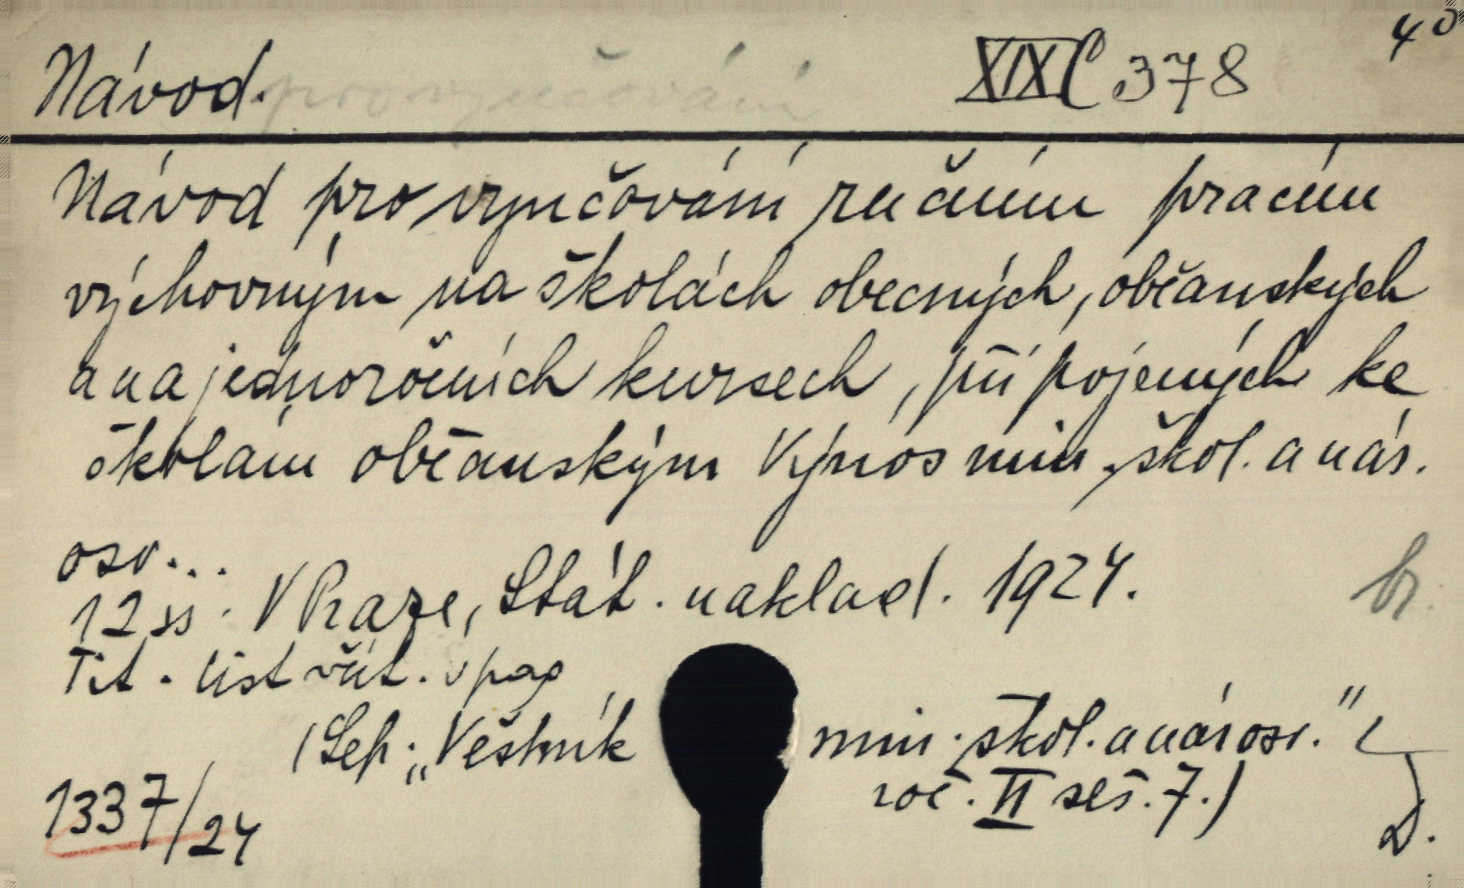 Návod. XIX C 378 4°
pro vyučování
Návod pro vyučování ručním pracím
výchovným na školách obecných, občanských
a na jednoročních kursech, při pojených ke
školám občanským Výnos min. škol. a nár.
osv...
12 ss. V Praze, Stát. naklad. 1924. br.
Tit. list včít. v pag
(Sep. „Věstník min. škol. a nár osv."
roč. II seš. 7.)
1337/24 D.